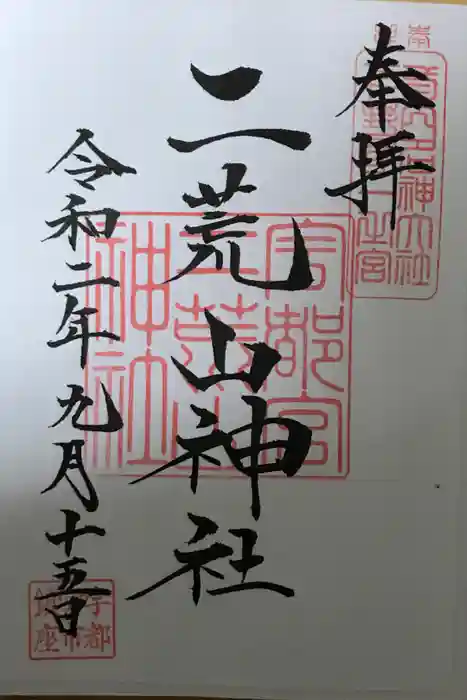 奉拝
二荒山神社
令和二年九月十五日
宇都宮
二荒山
神社